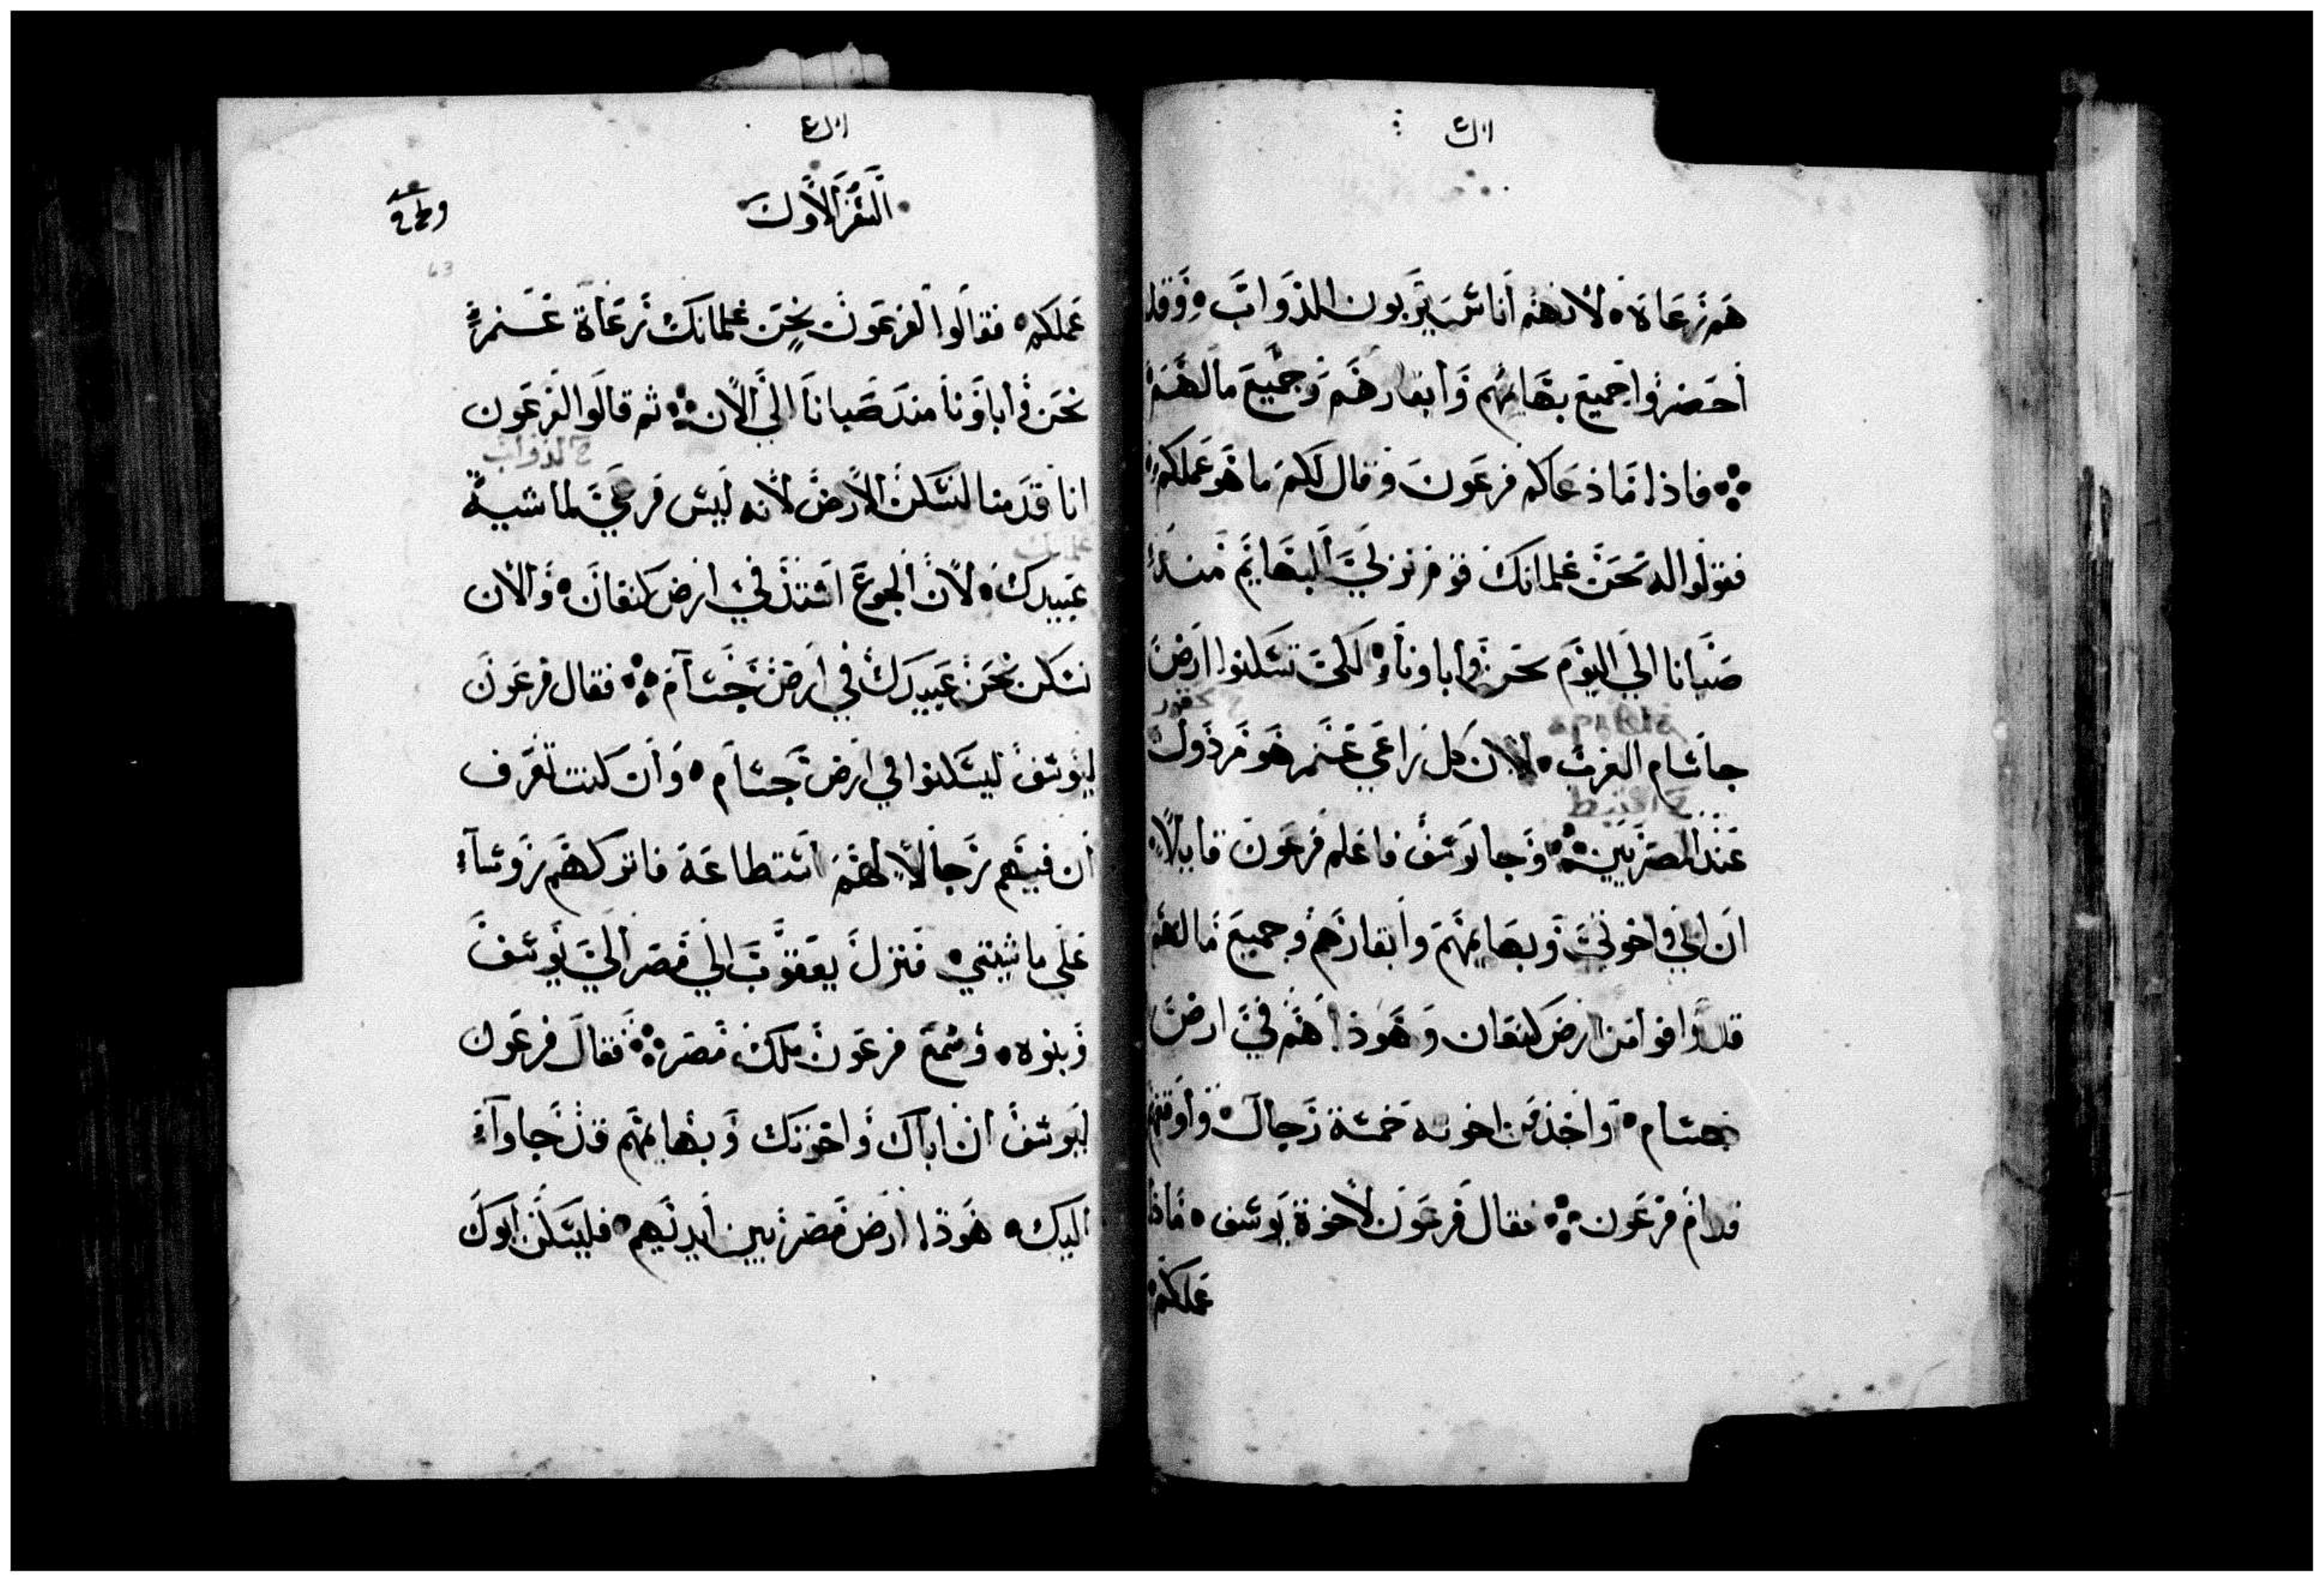 هم رعاه لانهم اناس يربون الدواب وقد
احضروا جميع بهايهم وابقارهم وجميع مالهم
فاذا ما دعاكم فرعون وقال لكم ما هو عملكم
فقولوا له نحن غلمانك قوم نربي البهايم منذ
صبانا الي اليوم نحن واباونا لكي تسكنوا ارض
جاسام العرب لان كل راعي غنم هو مردول
عند المصريين وجا يوسف فاعلم فرعون قايلا
ان ابي واخوتي وبهايمهم وابقارهم وجميع مالهم
قد وافوا من ارض كنعان وهوذا هم في ارض
جسام واخذ من اخوته خمسة رجال واوقفهم
قدام فرعون فقال فرعون لاخوة يوسف ماذا
عملكم
السفر الاول
63
عملكم فقالوا لفرعون نحن غلمانك رعاة غنم
نحن واباونا منذ صبانا الي الان ثم قالوا لفرعون
الدواب
انا قدمنا لنسكن الارض لانه ليس مرعي لماشية
عبيدك لان الجوع اشتد في ارض كنعان والان
نسكن نحن عبيدك في ارض جسام فقال فرعون
ليوسف ليسكنوا في ارض جسام وان كنت تعرف
ان فيهم رجالا لهم استطاعة فاتركهم روساء
علي ماشيتي فنزل يعقوب الي مصر الي يوسف
وبنوه وسمع فرعون ملك مصر فقال فرعون
ليوسف ان اباك واخوتك وبهايمهم قد جاواء
اليك هوذا ارض مصر بين ايديهم فليسكن ابوك